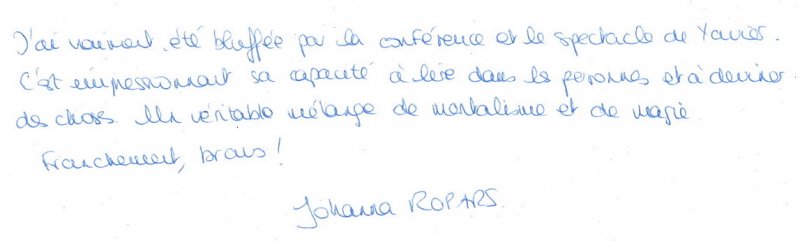 J'ai vraiment été bluffée par la conférence et le spectacle de Xavier.
C'est impressionnant sa capacité à lire dans les personnes et à deviner
des choses. Un véritable mélange de mentalisme et de magie
Franchement, bravo !
Johanna ROPARS